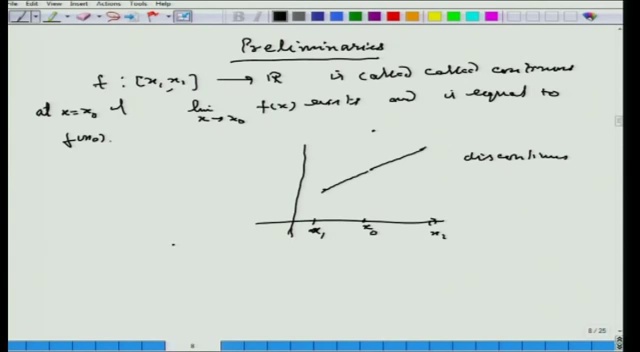 File Edit View Insert Actions Tools Help
Preliminaries
f : [x₁, x₁] → ℝ is called called continuous
at x=x₀ if lim x→x₀ f(x) exists and is equal to
f(x₀).
discontinuous
x₁ x₀ x₂
8 / 25
8